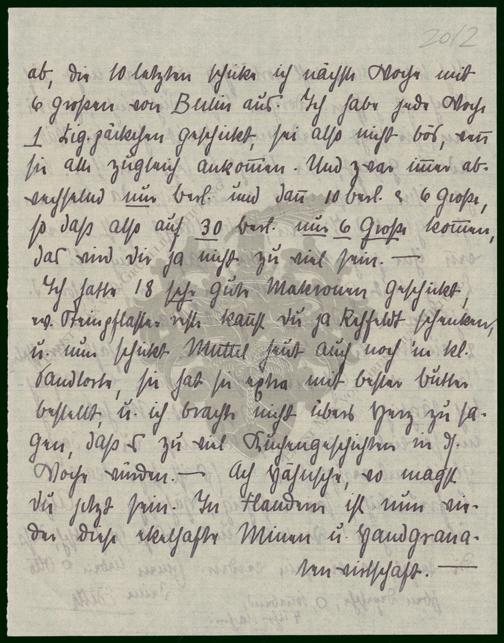 2012
ab, die 10 letzten schicke ich nächste Woche mit
6 großen von Berlin aus. Ich habe jede Woche
1 Zig.päckchen geschickt, sei also nicht bös, wenn
sie alle zugleich ankom̄en. Und zwar im̄er ab-
wechselnd nur Berl. und dan̄ 10 Berl. & 6 Große,
so daß also auf 30 Berl. nur 6 Große kom̄en,
das wird dir ja nicht zu viel sein. —
Ich hatte 18 sehr gute Makronen geschickt,
ev. kan̄st du ja Rehfeldt schenken,
u. nun schickt Muttel heut auch noch 'ne kl.
Sandtorte, sie hat sie extra mit bester Butter
bestellt, u. ich brachte nicht übers Herz zu sa-
gen, daß es zu viel Kuchengeschichten in d.
Woche würden. — Ach Hähnschen, wo magst
du jetzt sein. In Flandern ist nun wie-
der diese ekelhafte Minen u. Handgrana-
tenwirtschaft. —